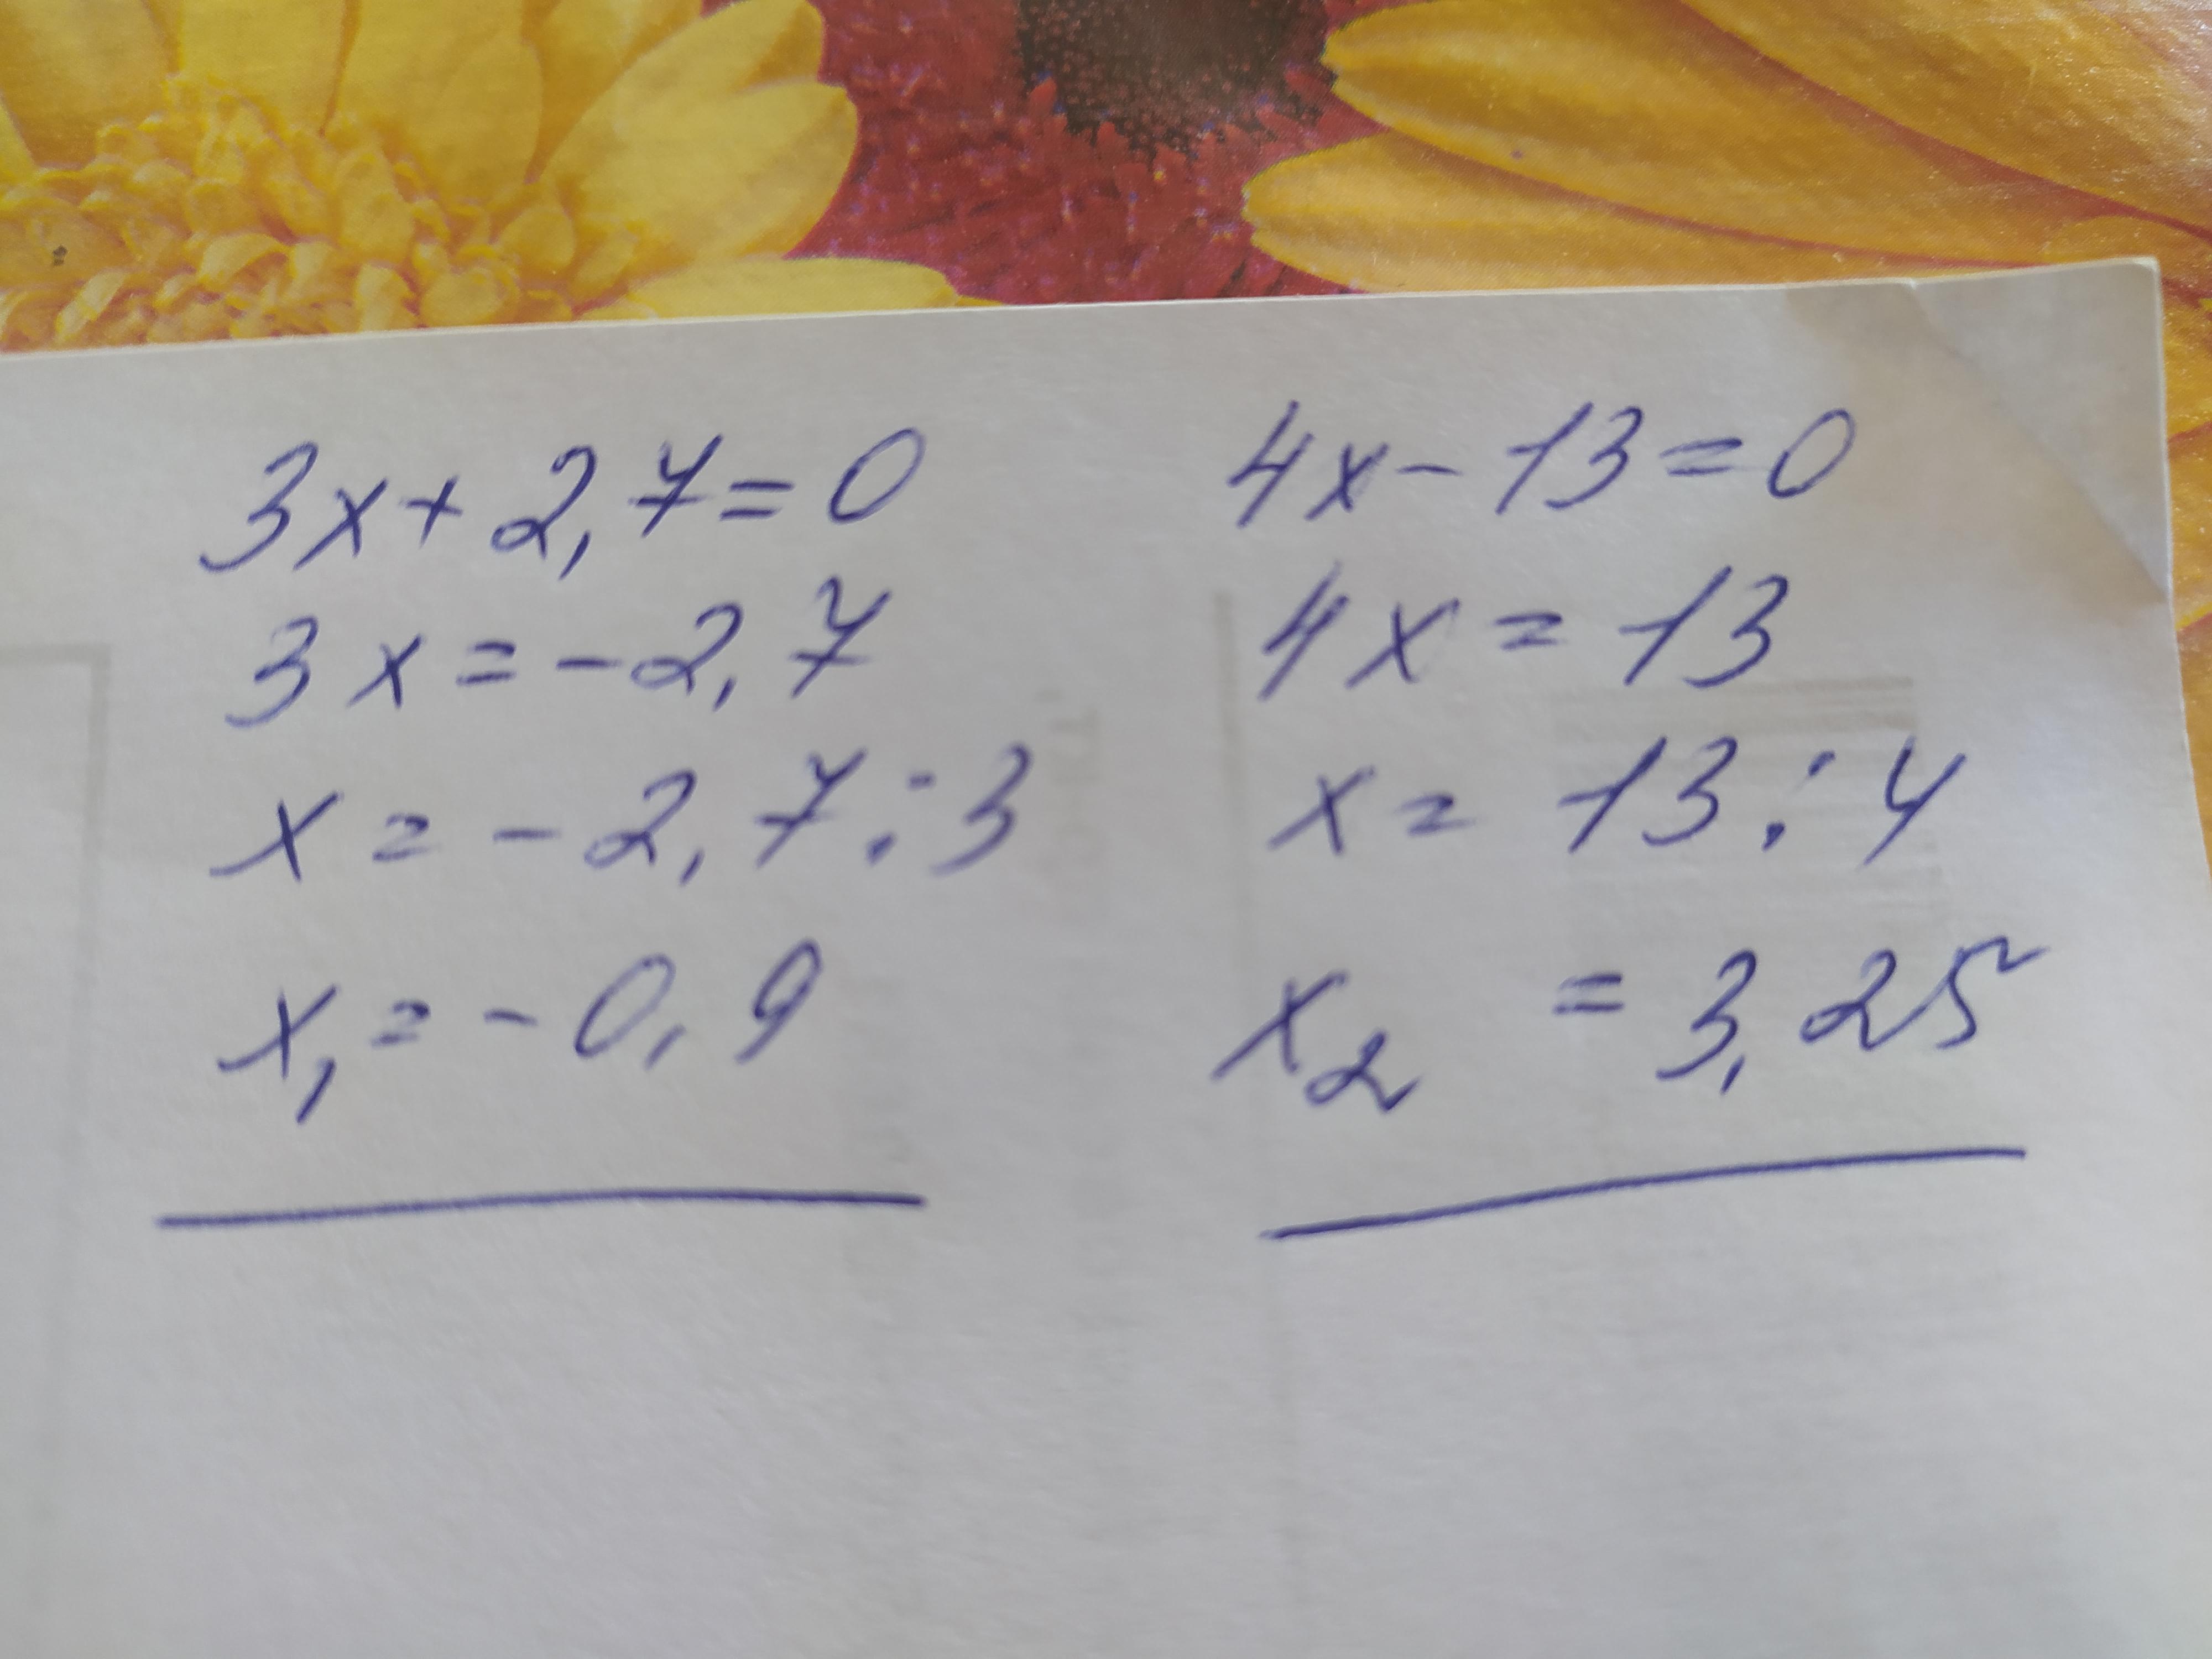 3x + 2,7 = 0
3x = -2,7
x = -2,7 : 3
x₁ = -0,9
4x - 13 = 0
4x = 13
x = 13 : 4
x₂ = 3,25